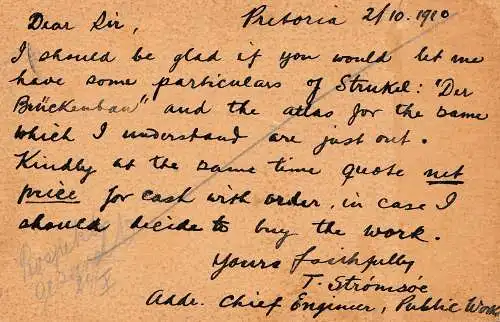 Dear Sir, Pretoria 2/10. 1910
I should be glad if you would let me
have some particulars of Strukel: "Der
Brückenbau" and the atlas for the same
which I understand are just out.
Kindly at the same time quote net
price for cash with order, in case I
should decide to buy the work.
Yours faithfully
T. Strömsöe
Adde. Chief Engineer, Public Wor